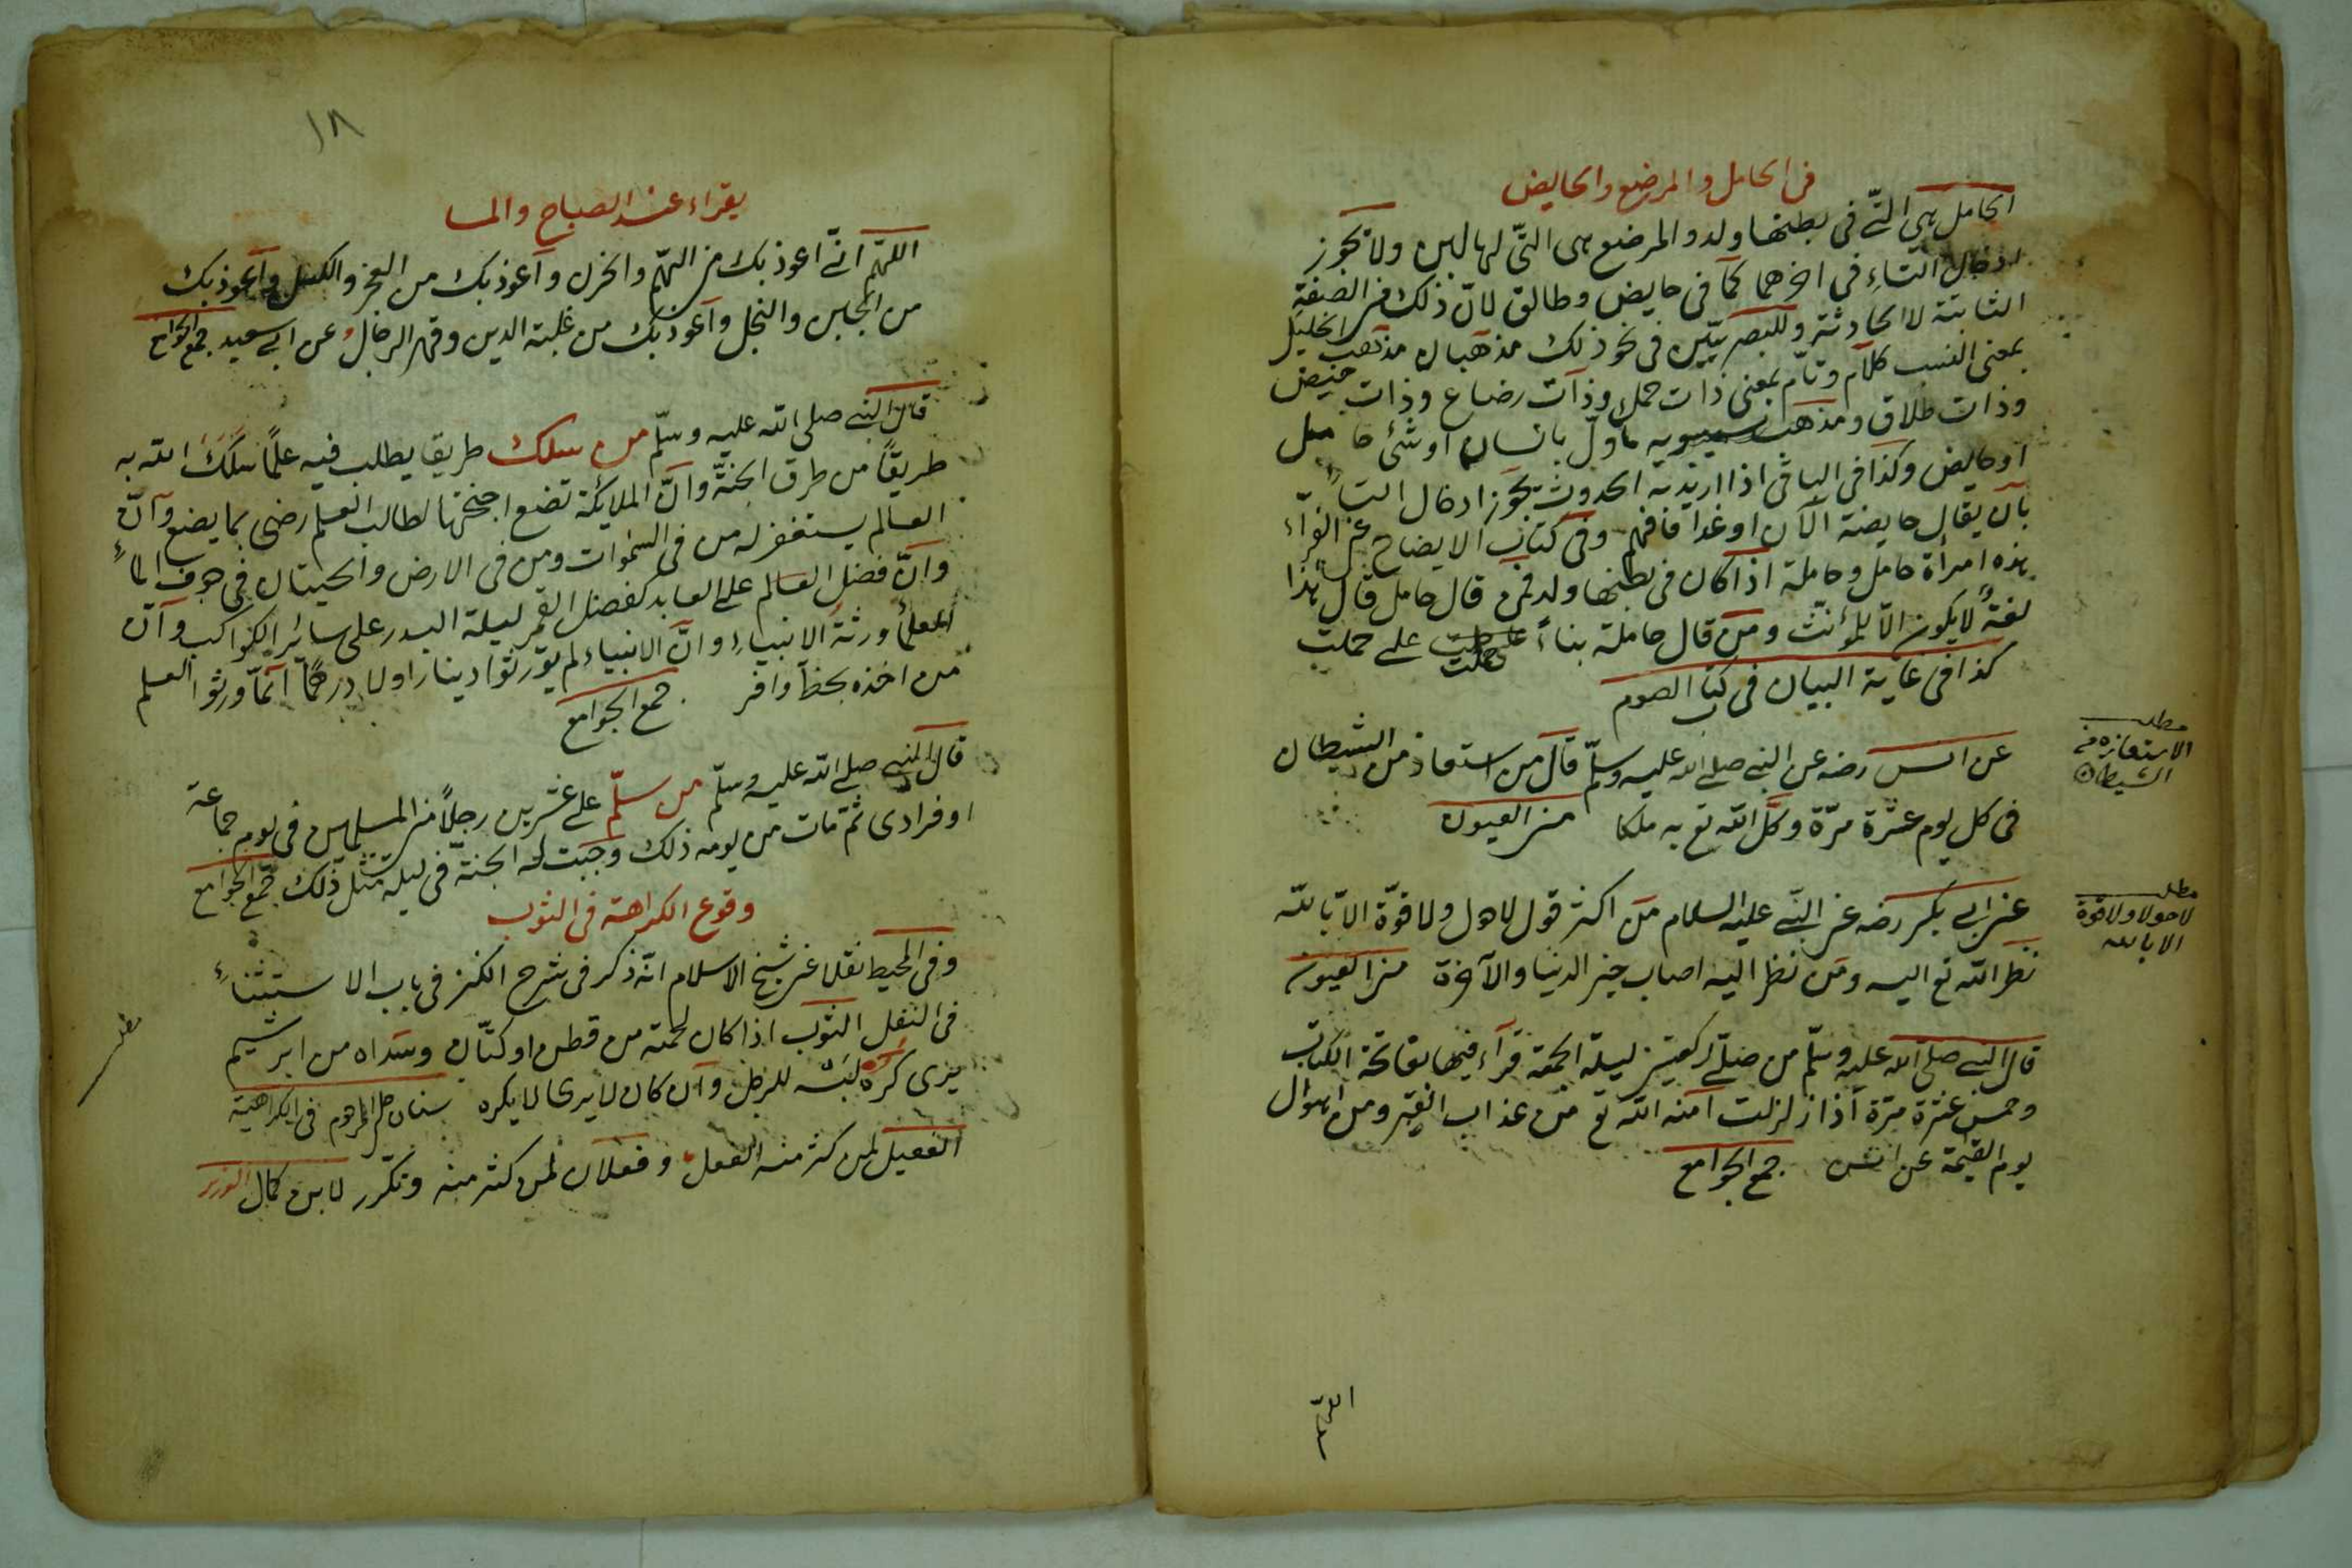 فى الحامل والمرضع والحايض
الحامل هى التّى فى بطنها ولد والمرضع هى التّى لها لبن ولا يجوز
ادخال التّاءِ فى اخرهما كما فى حايض وطالق لانّ ذلك من الصفة
الثابتة لا الحادثة وللبصريّين فى نحو ذلك مذهبان مذهب الخليل
بمعنى النسب كلآم وتآم بمعنى ذات حمل وذات رضاع وذات حيض
وذات طلاق ومذهب سيبويه ماوّل بانسان او شئ حامل
او حايض وكذا فى الباقى اذا اريد به الحدوث يجوز ادخال التاءِ
بان يقال حايضة الآن او غدا فافهم وفى كتاب الايضاح عن الفرّاء
هذه امرأة حامل وحاملة اذا كان فى بطنها ولد فمن قال حامل قال هذا
لغةٌ لا يكون الاّ للمؤنّث ومن قال حاملة بناءً على حملت
كذا فى غاية البيان فى كتاب الصوم
مطلب
الاستعاذه من
الشيطان
عن انس رضه عن النبى صلى الله عليه وسلّم قال من استعاذ من الشيطان
فى كل يوم عشرة مرّة وكّل الله تع به ملكا من العيون
مطلب
لاحولا ولاقوة
الا بالله
عن ابى بكر رضه عن النبّى عليه السلام من اكثر قول لا حول ولا قوّة الاّ بالله
نظر الله تع اليه ومن نظر اليه اصاب خير الدنيا والآخرة من العيون
قال النبى صلى الله عليه وسلّم من صلّى ركعتين ليلة الجمعة قرآء فيهما بفاتحة الكتاب
وخمس عشرة مرّة اذا زلزلت آمنه الله تع من عذاب القبر ومن اهوال
يوم القيمة عن انس جمع الجوامع
اللهمّ
١٨
يقراء عند الصباح والمسا
اللهّم انّى اعوذ بك من الهمّ والحزن واعوذ بك من العجز والكسل واعوذ بك
من الجبن والبخل واعوذ بك من غلبة الدين وقهر الرجال عن ابى سعيد جمع الجوامع
قال النبى صلى الله عليه وسلّم من سلك طريقا يطلب فيه علمًا سَلَكَ الله به
طريقًا من طرق الجنّة وانّ الملائكة تضع اجنحتها لطالب العلم رضى بما يضع وانّ
العالم يستغفر له من فى السموات ومن فى الارض والحيتان فى جوف الماءِ
وانّ فضل العالم على العابد كفضل القمر ليلة البدر على سائر الكواكب وانّ
العلماء ورثة الانبياء وانّ الانبياء لم يورّثوا دينارا ولا درهمًا انمّا ورثوا العلم
من اخذه بحظّ وافر جمع الجوامع
قال النبى صلى الله عليه وسلّم من سلّم على عشرين رجلاً من المسلمين فى يوم جماعة
او فرادى ثمّ مات من يومه ذلك وجبت له الجنّة فى ليله مثل ذلك جمع الجوامع
وقوع الكراهة فى الثوب
وفى المحيط نقلا عن شيخ الاسلام انّه ذكر فى شرح الكنز فى باب الاستثناءِ
فى النفل الثوب اذا كان لحمته من قطن او كتّان وسداه من ابريشيم
مطلب
يرى كره لبسه للرجل وان كان لا يرى لا يكره سنان المرحوم فى الكراهية
الفعيل لمن كثر منه الفعل وفعلان لمن كثر منه وتكرّر لابن كمال الوزير